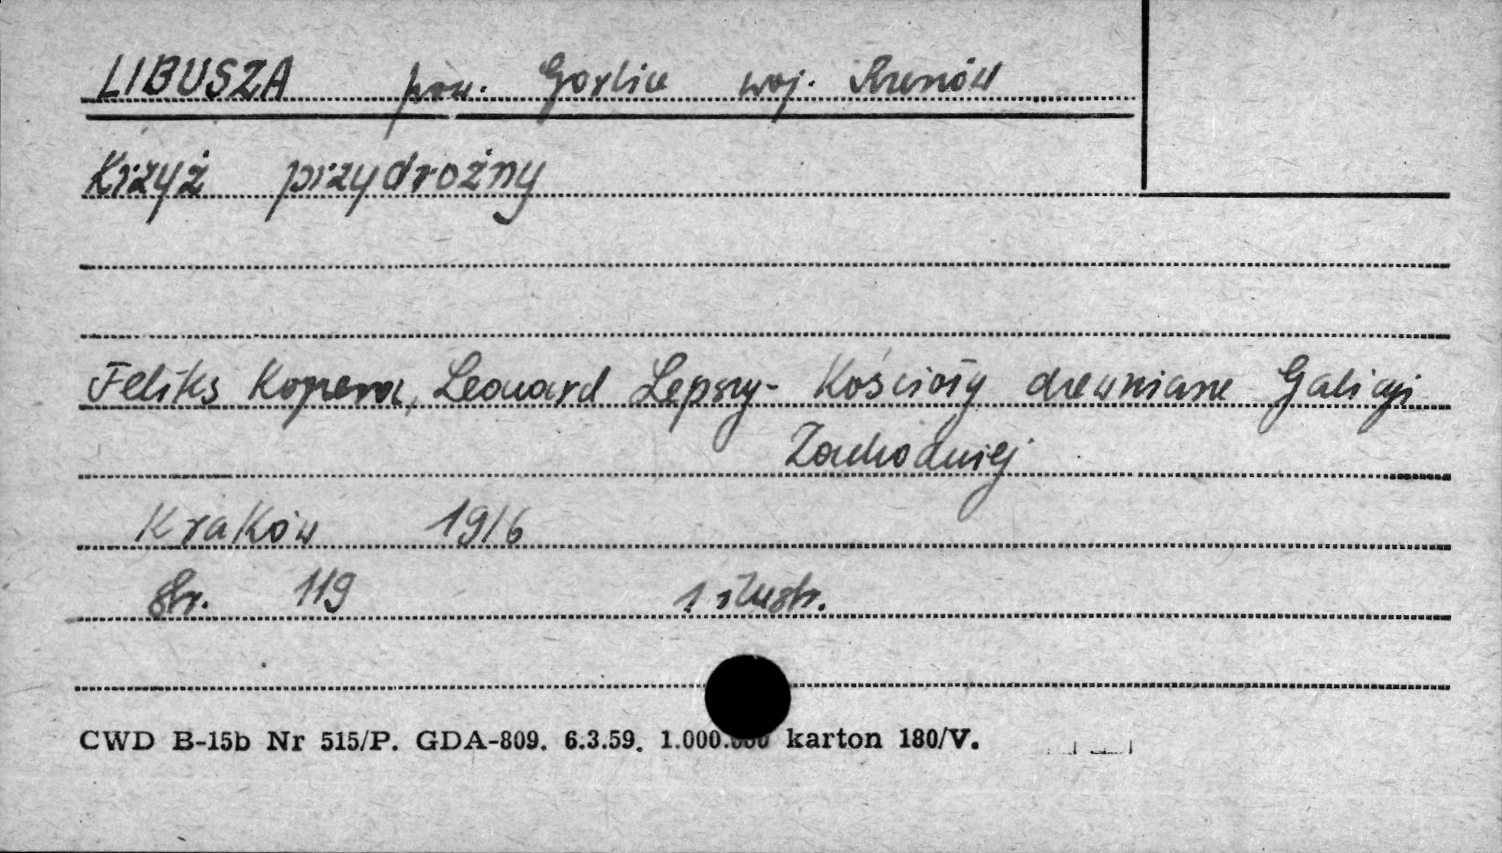 LIBUSZA pow. Gorlice woj. Rzeszów
Krzyż przydrożny
Feliks Kopera, Leonard Lepszy - Kościoły drewniane Galicyi
Zachodniej
Kraków 1916
str. 119 1 ilustr.
CWD B-15b Nr 515/P. GDA-809. 6.3.59. 1.000.000 karton 180/V.